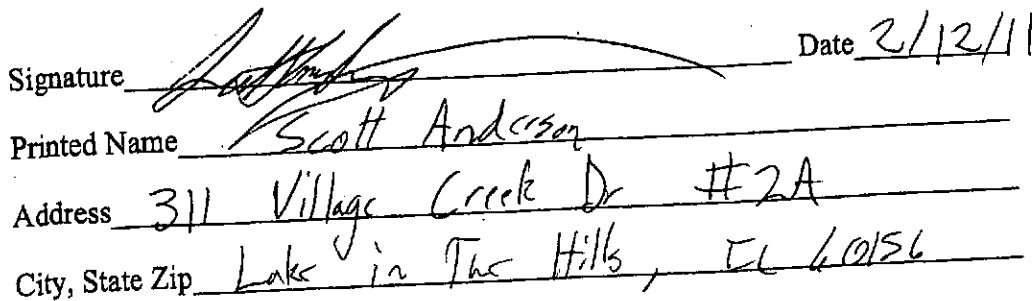 Signature Date 2/12/11
Printed Name Scott Anderson
Address 311 Village Creek Dr #2A
City, State Zip Lake in The Hills, IL 60156